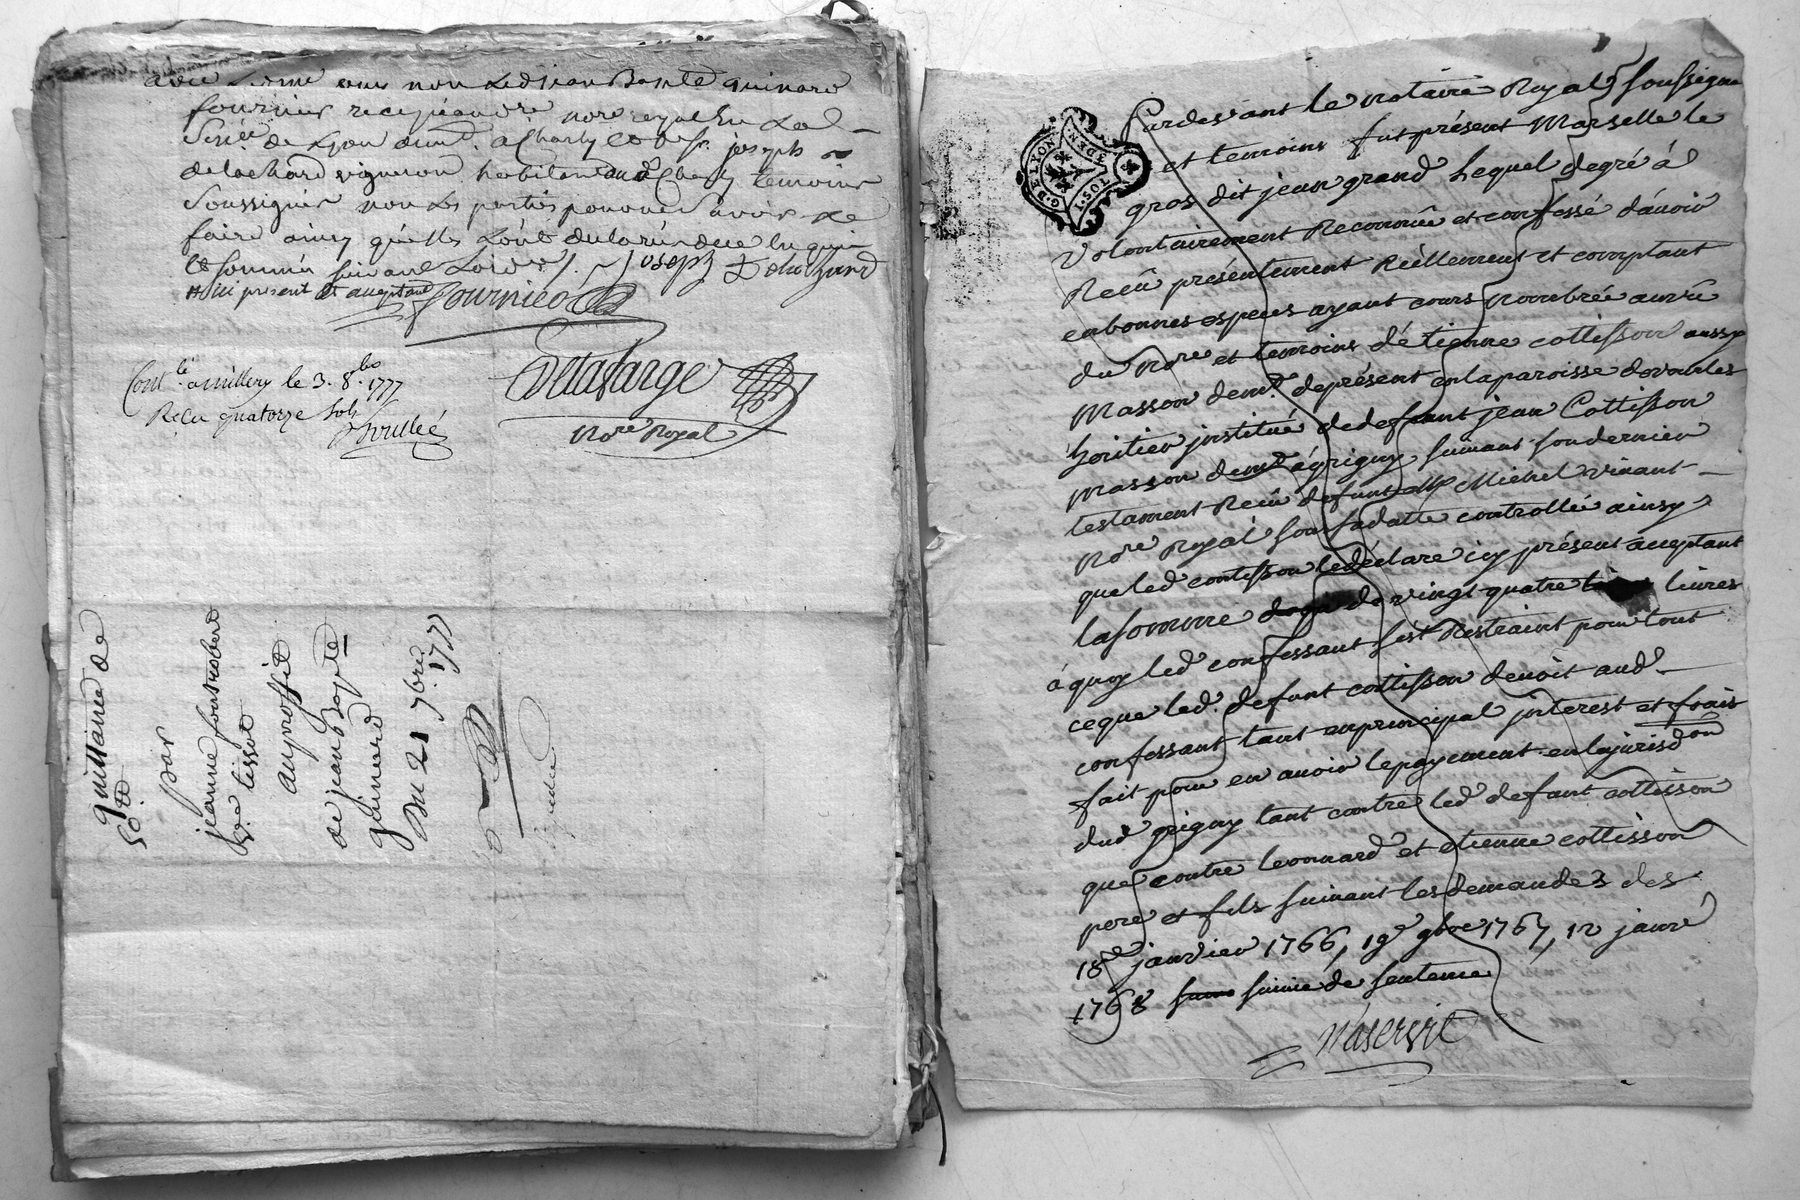 avec lome ans non led jean Bapte guinard
fournier recepiendre nore royal en la
Séné de Lyon demt. a Charly et de sr. joseph
delachard vigneron habitant aud Charly temoins
Soussignés non les parties pour ne Savoir le
faire ainsy qu'elles l'ont declaré de ce enquis
et sommés suivant L'ord. Joseph Delachard
aussi present et acceptant Fournier
Dellafarge
Nore Royal
Contlé. a millery le 3. 8.bre 1777
Reçu quatorze sols
quittance de
50 tt
par
jeanne fontrobert
ve tissot
au proffit
de jean Bapte
guinard
Du 21 7bre 1777
G. DE LYON
1. SOL 8 DEN.
Pardevant le notaire Royal soussigné
et temoins fut présent Marselle le
gros dit jean grand Lequel degré à
volontairement Reconnû et confessé d'avoir
Reçû présentement Réellement et comptant
en bonnes espèces ayant cours nombrée au vû
du Nore et temoins d'étienne cottisson aussy
Masson demt. de présent en la paroisse de vourles
héritier institué de defunt jean Cottisson
Masson demt à grigny suivant son dernier
testament Reçû defunt Me Michel vinant
Nore Royal sous sa datte controllé ainsy
que led cottisson le déclare icy présent acceptant
la somme de vingt quatre livres
à quoy led confessant s'est Restraint pour tout
ce que led. defunt cottisson devoit aud
confessant tant en principal interest et frais
fait pour en avoir le payement en la jurisdon
dud grigny tant contre led defunt cottisson
que contre leonnard et etienne cottisson
pere et fils suivant les demandes des
18e janvier 1766, 19e 9bre 1767, 12 janvé
1768 suivie de sentence
N'a servit